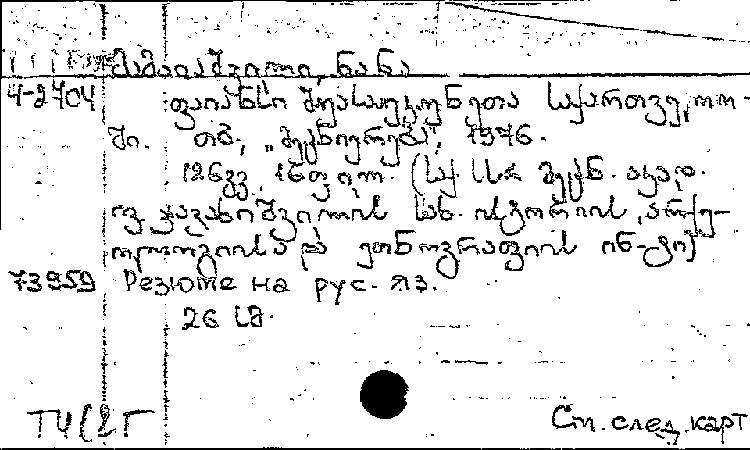 მამაიაშვილი, ნანა
4-2704 ფაიანსი შუასაუკუნეთა საქართველო-
ში. თბ., „მეცნიერება", 1976.
126გვ. 16ფ.ილ. (საქ. სსრ მეცნ. აკად.
ივ. ჯავახიშვილის სახ. ისტორიის, არქე-
ოლოგიისა და ეთნოგრაფიის ინ-ტი)
73959 Резюме на рус. яз.
26 სმ.
Т4(2Г
См. след. карт